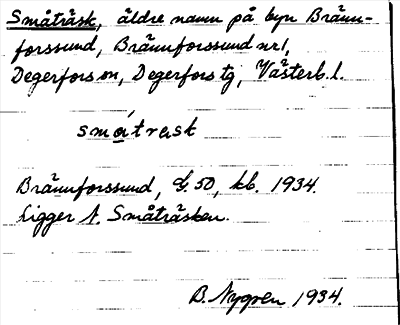 Småträsk, äldre namn på byn Bränn-
forssund, Brännforssund nr 1,
Degerfors sn, Degerfors tg, Västerb. l.
småtrask
Brännforssund, kb. 1934.
Ligger N. Småträsken.
B. Nygren 1934.